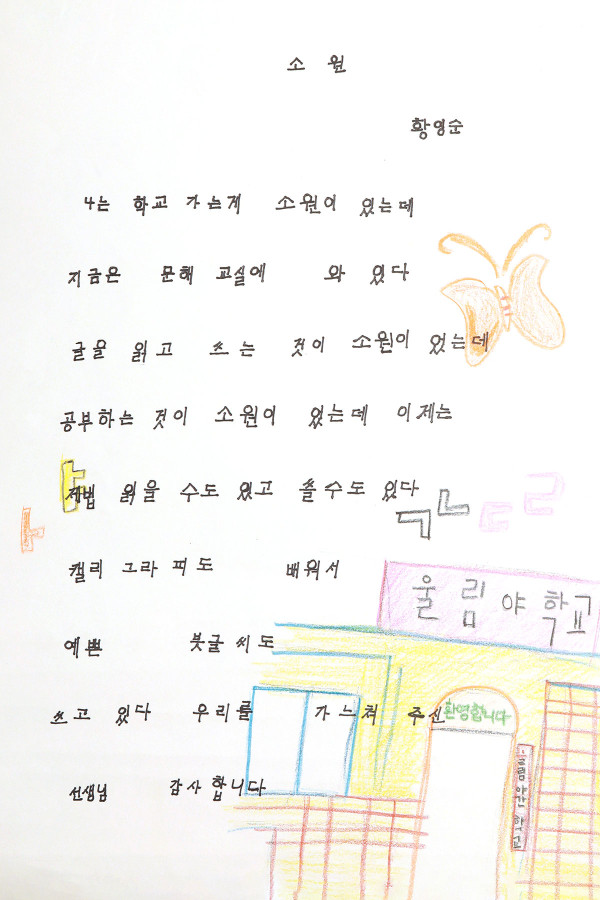 소원
황영순
나는 학교 가는게 소원이 있는데
지금은 문해 교실에 와 있다
글을 읽고 쓰는 것이 소원이 었는데
공부하는 것이 소원이 있는데 이제는
제법 읽을 수도 있고 쓸수도 있다
ㅏ
ㅏ
ㄱㄴㄷㄹ
캘리 그라피도 배워서
울림야학교
예쁜 붓글씨도
쓰고 있다 우리를 가느쳐 주신
환영합니다
선생님 감사합니다
림야간학교